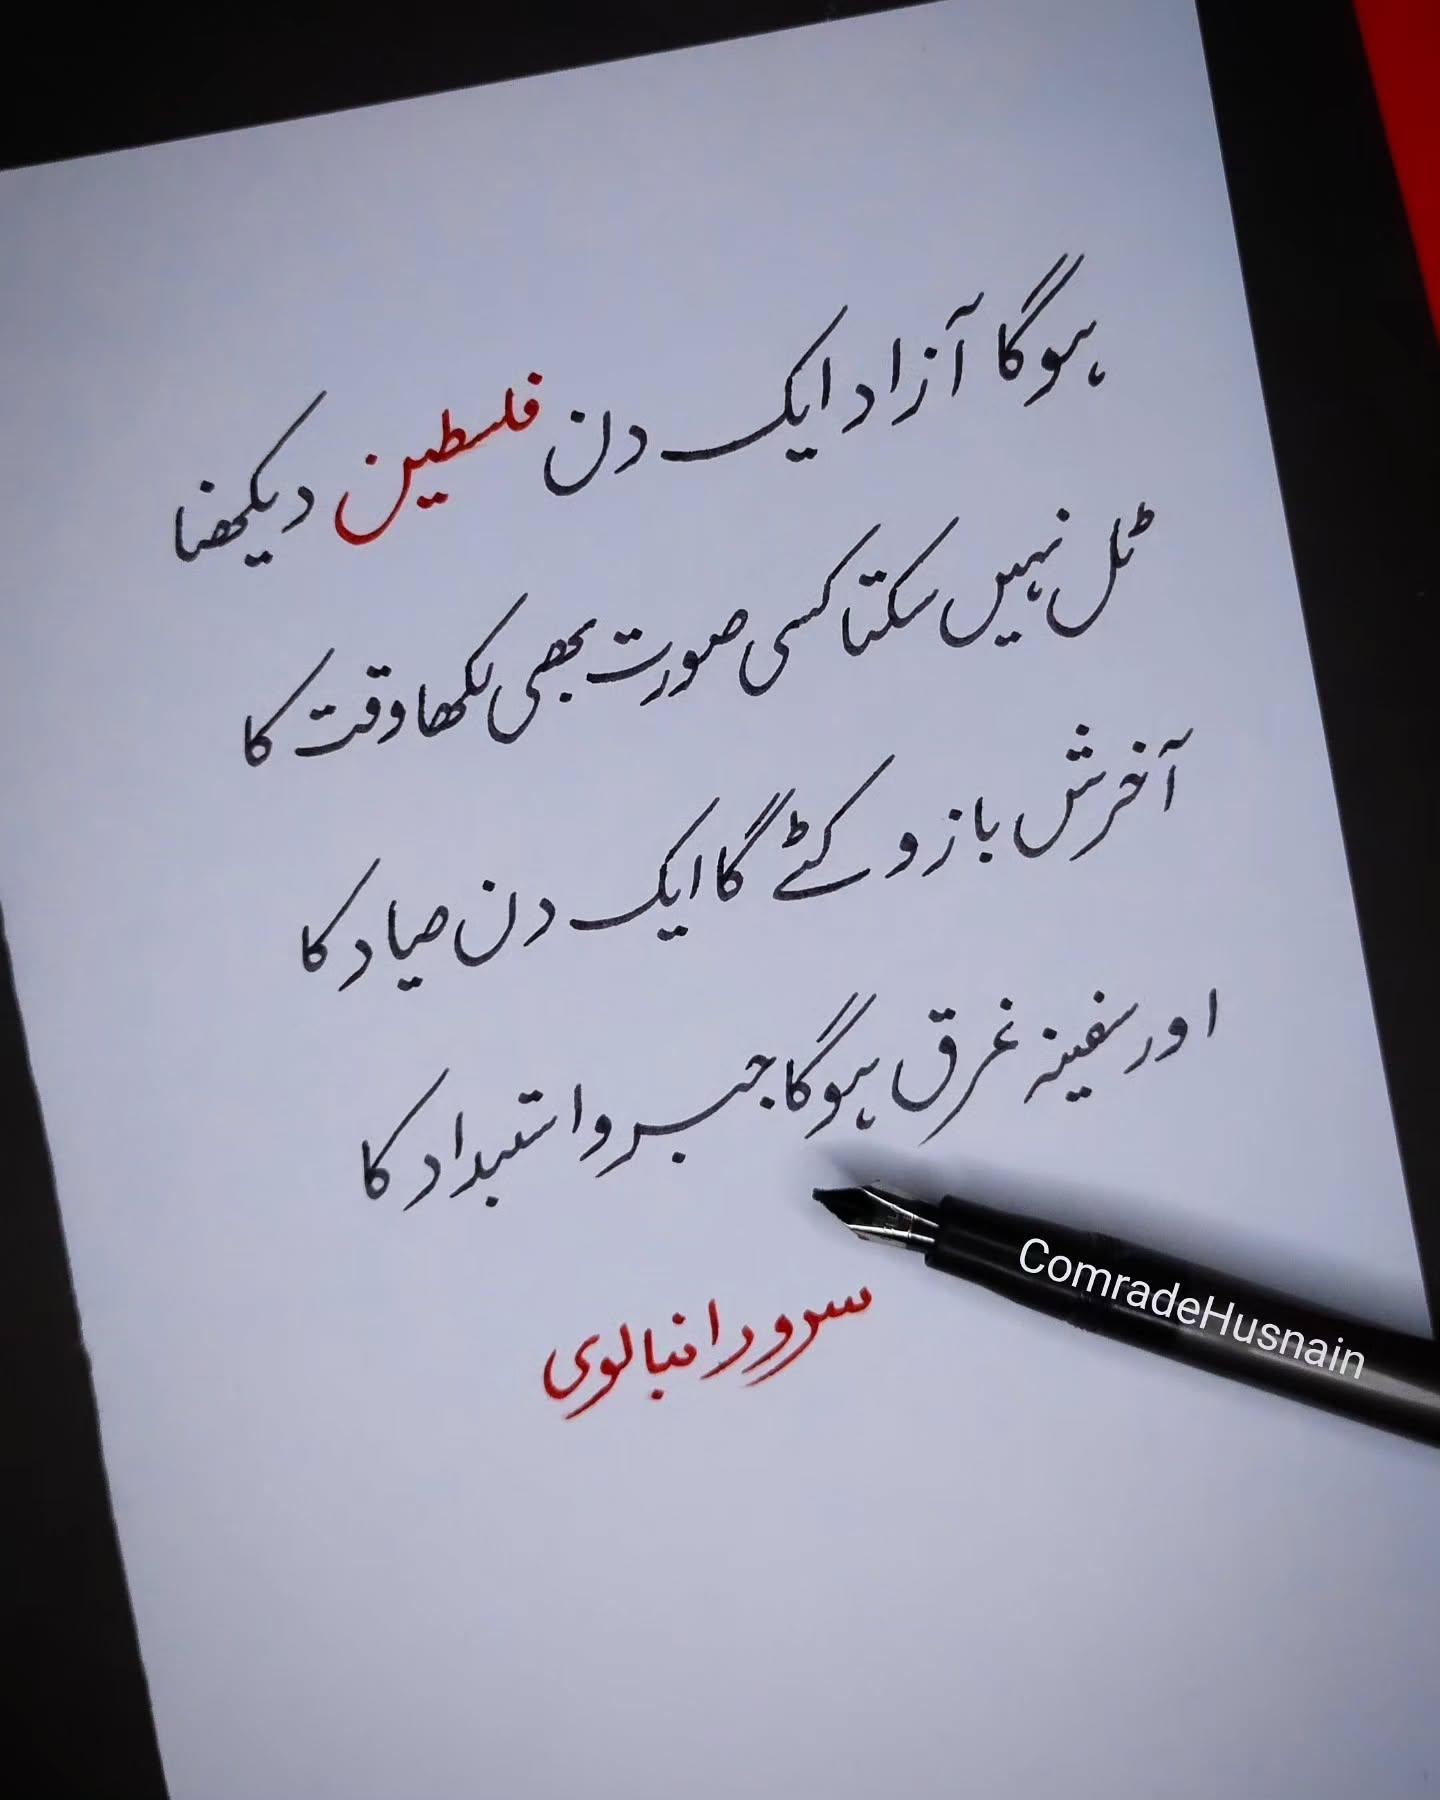 ہوگا آزاد ایک دن فلسطین دیکھنا
ٹل نہیں سکتا کسی صورت بھی لکھا وقت کا
آخرش بازو کٹے گا ایک دن صیاد کا
اور سفینہ غرق ہوگا جبر و استبداد کا
سرور انبالوی
ComradeHusnain